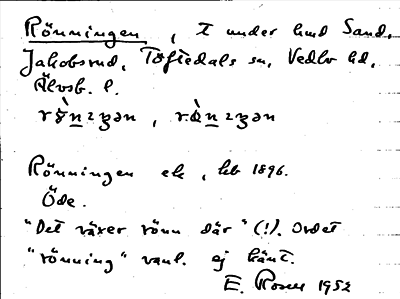 Rönningen, t under hmd Sand,
Jakobsrud, Töftedals sn, Vedbo hd,
Älvsb. l.
Rönningen ek, kb 1896.
Öde.
"Det växer rönn där" (!). Ordet
"rönning" vanl. ej känt.
E. Rosen 1952